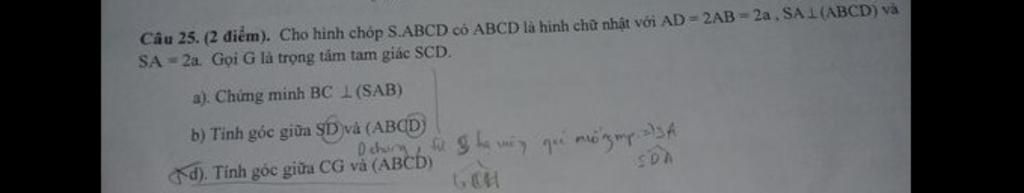 Câu 25. (2 điểm). Cho hình chóp S.ABCD có ABCD là hình chữ nhật với AD = 2AB = 2a , SA ⊥ (ABCD) và
SA = 2a. Gọi G là trọng tâm tam giác SCD.
a). Chứng minh BC ⊥ (SAB)
b) Tính góc giữa SD và (ABCD)
D chung, từ S hạ vuông mp ⇒ SA
SDA
d). Tính góc giữa CG và (ABCD)
GCH